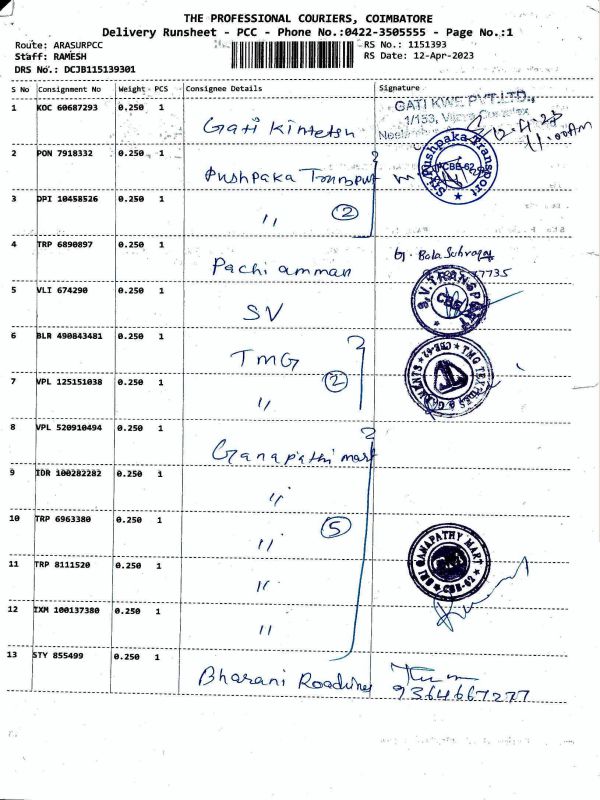 THE PROFESSIONAL COURIERS, COIMBATORE
Delivery Runsheet - PCC - Phone No.:0422-3505555 - Page No.:1
Route: ARASURPCC
Staff: RAMESH
DRS No.: DCJB115139301
RS No.: 1151393
RS Date: 12-Apr-2023
S No Consignment No Weight PCS Consignee Details Signature
1 KOC 60687293 0.250 1 Gati Kintetsu
GATI KWE PVT.LTD.,
1/133,
12.4.23
11.00AM
2 PON 7918332 0.250 1 Pushpaka Transport
Sri Pushpaka Transport
CBE-62
3 DPI 10458526 0.250 1 " (2)
4 TRP 6890897 0.250 1 Pachi amman
5 VLI 674290 0.250 1 SV
S.V.TRANSPORT
CBE
6 BLR 490843481 0.250 1 TMG
TMG TEXTILES & GARMENTS
CBE-62
7 VPL 125151038 0.250 1 " (2)
8 VPL 520910494 0.250 1 Ganapathi mart
9 IDR 100282282 0.250 1 "
10 TRP 6963380 0.250 1 " (5)
SRI GANAPATHY MART
CBE-62
11 TRP 8111520 0.250 1 "
12 IXM 100137380 0.250 1 "
13 STY 855499 0.250 1 Bharani Roadlines
9364667277